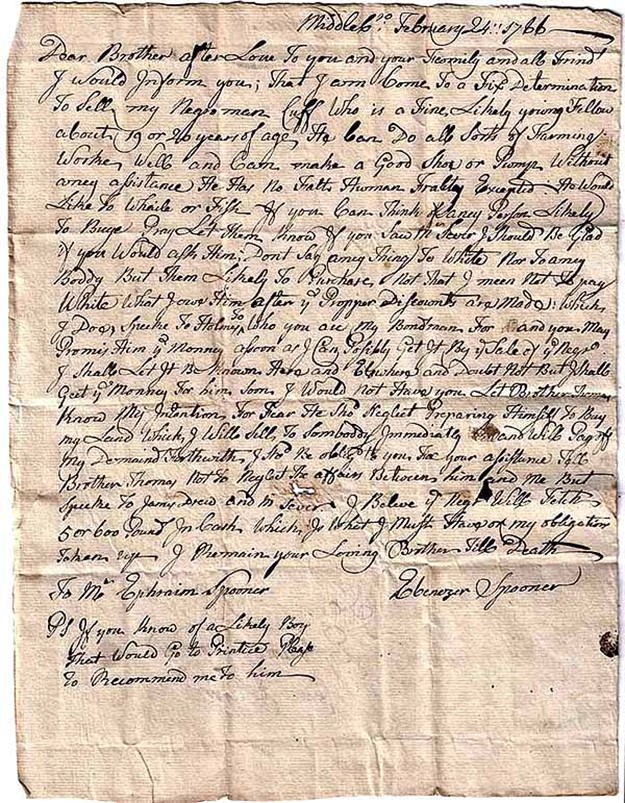 Middleb.ro February 24.th 1766
Dear Brother after Love To you and your Family and all Frinds
I Would Inform you; That I am Come To a Fixt Determination
To Sell my Negroman Cuff Who is a Fine, Likely young Fellow
about 19 or 20 years of age, He Can Do all Sorts of Farming
Worke, Well and Can make a Good Shoe or Pump Without
aney asistance He Has No Falts Human Fralty Excepted He Would
Like To Whaile or Fish If you Can Think of aney Person Likely
To Buye Pray Let Them Know If you Saw Mr Sever I Should Be Glad
if you Would ask Him; Dont Say aney Thing To White Nor To aney
Boddy But Them Likely To Purchase, Not That I meen Not To pay
White What I owe Him after ye Propper Discounts are Made: Which
I Do, Speake To Who you are My Bondman For and you May
Promis Him ye Monney assoon as I Can Posibly Get It By ye Sale of ye Negro
I Shall Let It Be Known Here and Elswhere and Doubt Not But I Shall
Get ye Monney For him Soon I Would Not Have you Let Brother Thomas
Know My Intention, For Fear He Shd Neglect Preparing Himself To Buy
my Land Which I Will Sell To Sombody Immediately and Will Pay off
My Demaind Forthwith I Shd Be oblig'd to you, For your asistance Tell
Brother Thomas Not To Neglect The affairs Between him and Me But
Speake To Jamy Drew and Mr Sever I Beleve ye Negro Will Fetch
5 or 600 Pound In Cash Which Is What I Must Have or my obligation
Taken up I Remain your Loving Brother Till Death
To Mr Ephraim Spooner Ebenezer Spooner
PS If you Know of a Likely Boy
that Would Go to Printice Please
To Recommend me To him